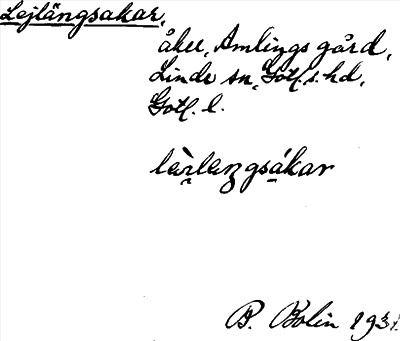 Lejlängsakar,
åker, Amlings gård,
Linde sn, Gotl. s. hd,
Gotl. l.
B. Bolin 1931.